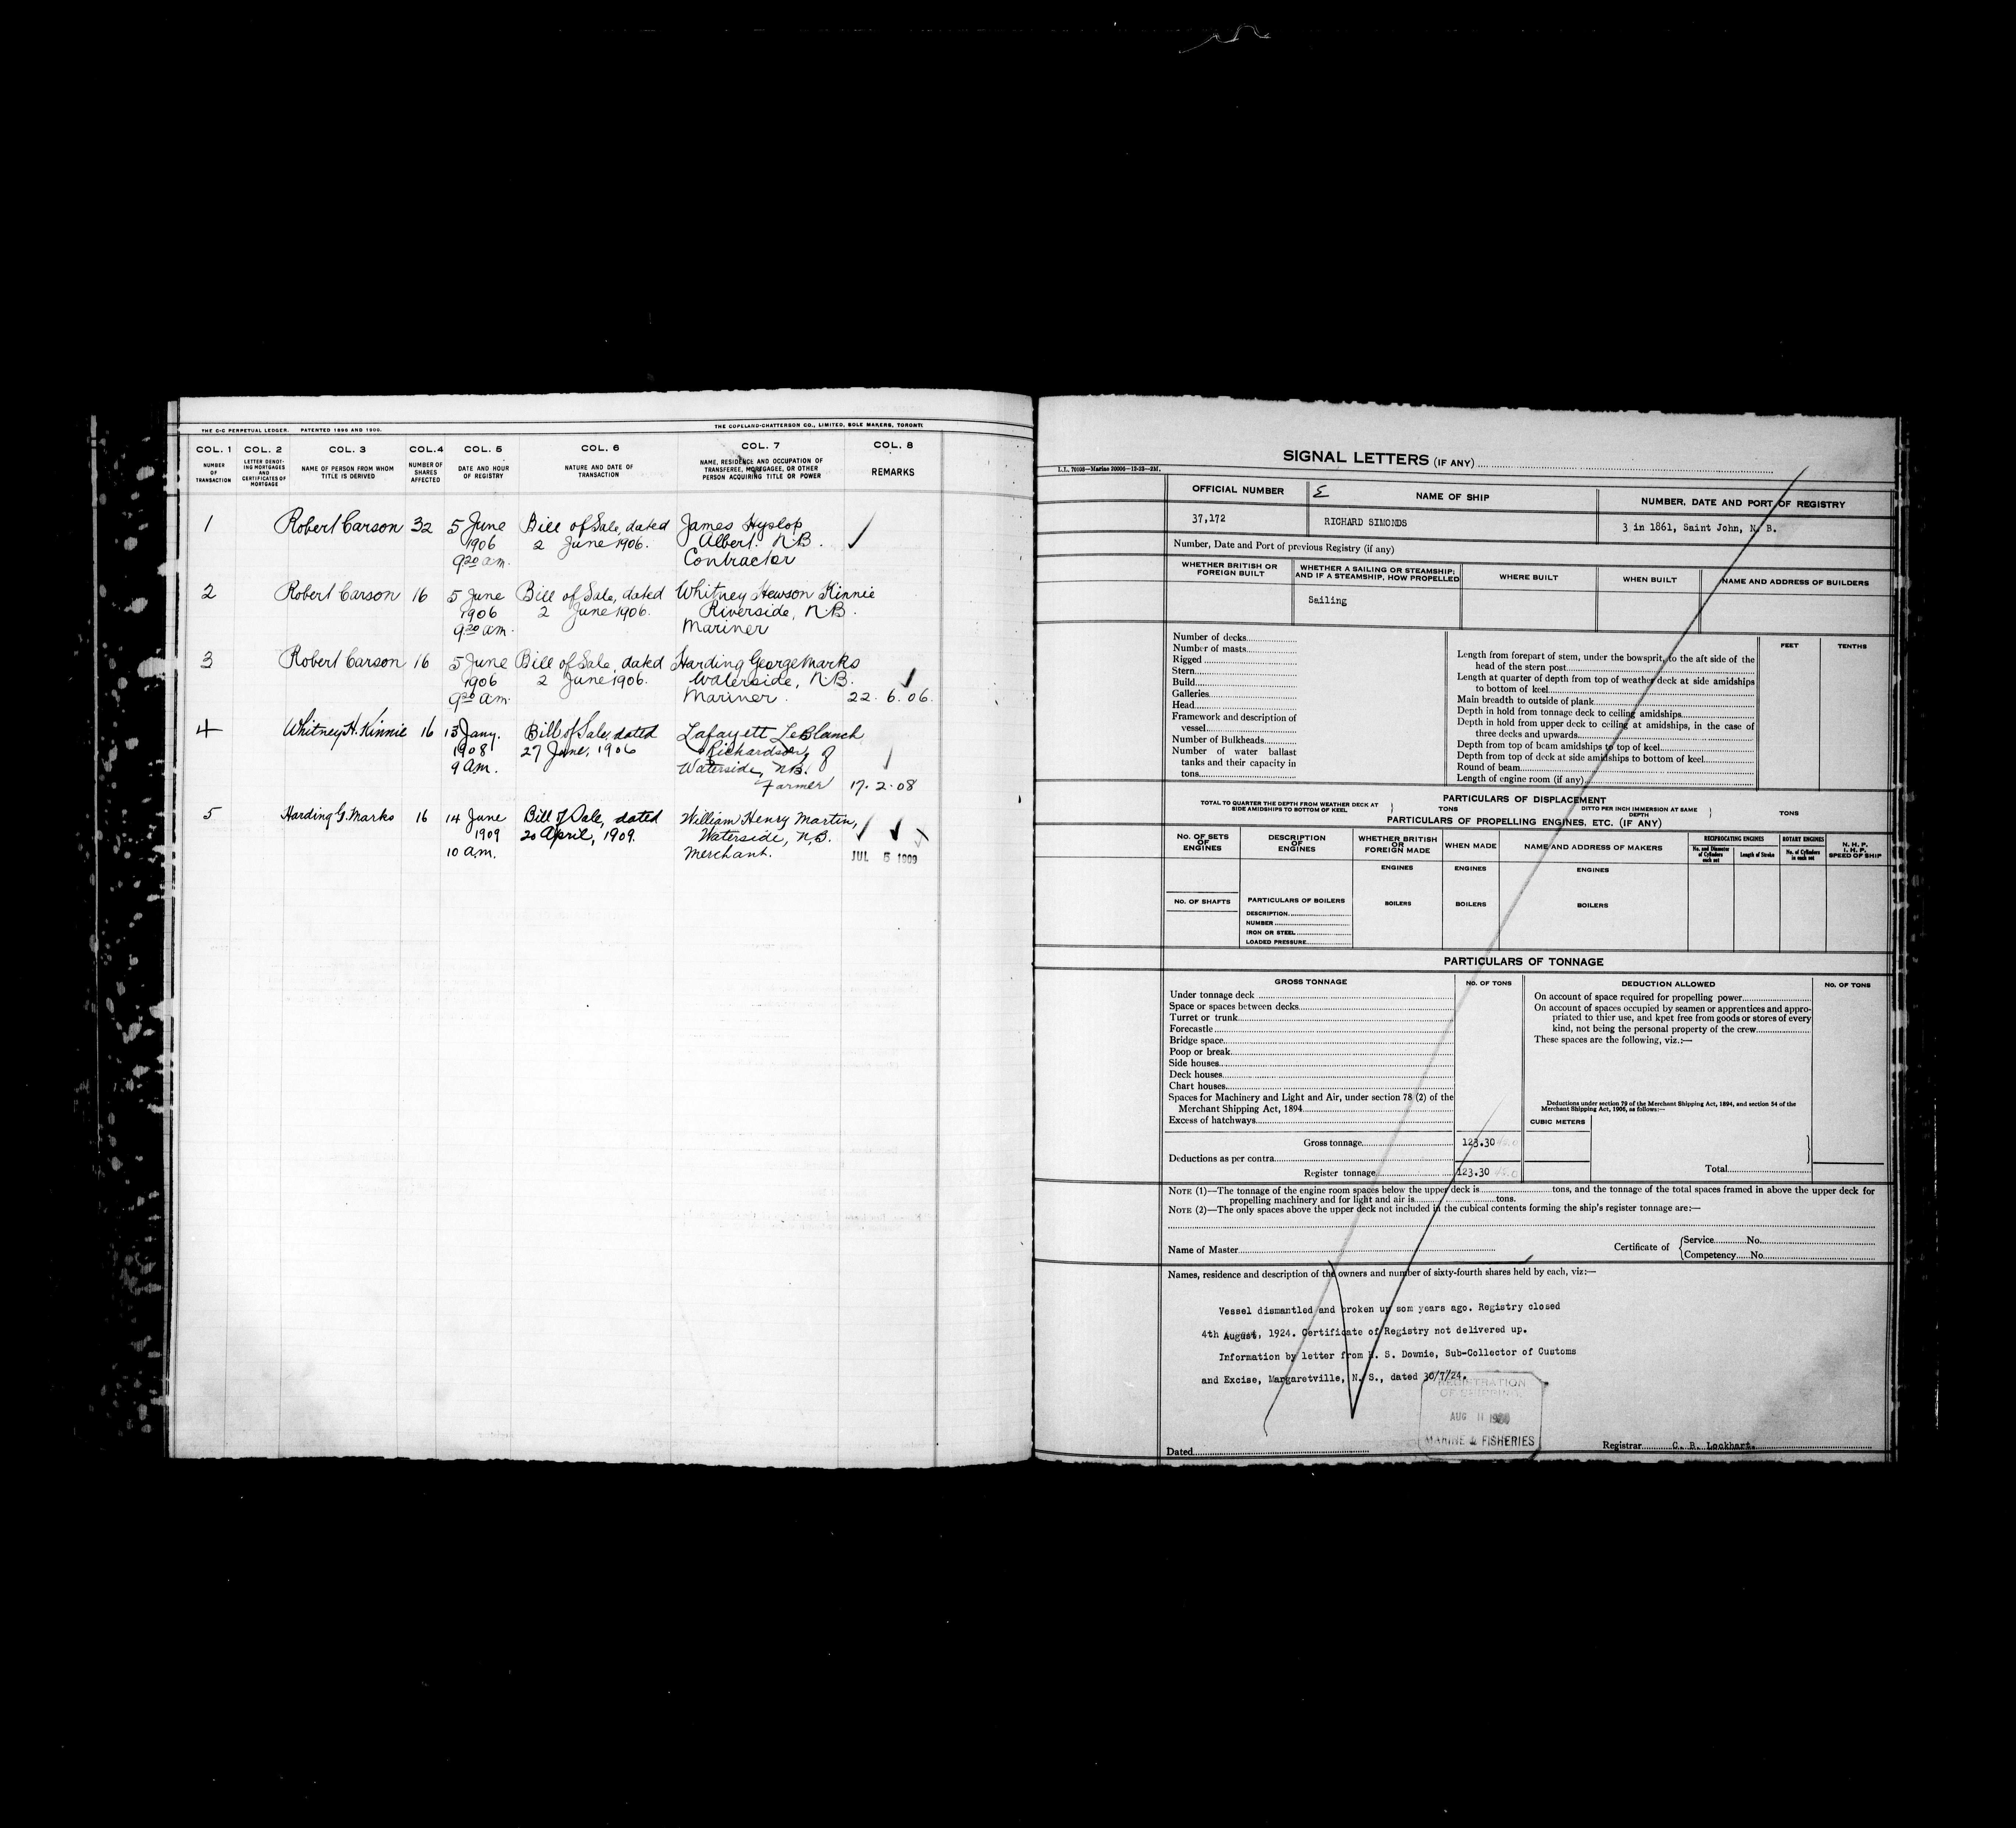 THE C-C PERPETUAL LEDGER. PATENTED 1896 AND 1900.
THE COPELAND-CHATTERSON CO., LIMITED, SOLE MAKERS, TORONTO
COL. 1 COL. 2 COL. 3 COL. 4 COL. 5 COL. 6 COL. 7 COL. 8
NUMBER OF TRANSACTION
LETTER DENOTING MORTGAGES AND CERTIFICATES OF MORTGAGE
NAME OF PERSON FROM WHOM TITLE IS DERIVED
NUMBER OF SHARES AFFECTED
DATE AND HOUR OF REGISTRY
NATURE AND DATE OF TRANSACTION
NAME, RESIDENCE AND OCCUPATION OF TRANSFEREE, MORTGAGEE, OR OTHER PERSON ACQUIRING TITLE OR POWER
REMARKS
1 Robert Carson 32 5 June Bill of Sale, dated James Hyslop
1906 2 June 1906. Albert. N.B.
9 20 a.m. Contractor
2 Robert Carson 16 5 June Bill of Sale, dated Whitney Hewson Kinnie
1906 2 June 1906. Riverside, N.B.
9 20 a.m. Mariner
3 Robert Carson 16 5 June Bill of Sale, dated Harding George Marks
1906 2 June 1906. Waterside, N.B.
9 20 a.m. Mariner. 22. 6. 06.
4 Whitney H. Kinnie 16 13 Jany. Bill of Sale, dated Lafayett LeBlanch
1908 27 June, 1906 Richardson, of
9 a.m. Waterside, N.B.
Farmer 17. 2. 08
5 Harding G. Marks 16 14 June Bill of Sale, dated William Henry Martin,
1909 20 April, 1909. Waterside, N.B.
10 a.m. Merchant. JUL 5 1909
SIGNAL LETTERS (IF ANY)
L.L. 70108—Marine 20000—12-23—2M.
OFFICIAL NUMBER NAME OF SHIP NUMBER, DATE AND PORT OF REGISTRY
37,172 RICHARD SIMONDS 3 in 1861, Saint John, N. B.
Number, Date and Port of previous Registry (if any)
WHETHER BRITISH OR FOREIGN BUILT
WHETHER A SAILING OR STEAMSHIP; AND IF A STEAMSHIP, HOW PROPELLED
WHERE BUILT WHEN BUILT NAME AND ADDRESS OF BUILDERS
Sailing
Number of decks
Number of masts
Rigged
Stern
Build
Galleries
Head
Framework and description of
vessel
Number of Bulkheads
Number of water ballast
tanks and their capacity in
tons
FEET TENTHS
Length from forepart of stem, under the bowsprit, to the aft side of the
head of the stern post
Length at quarter of depth from top of weather deck at side amidships
to bottom of keel
Main breadth to outside of plank
Depth in hold from tonnage deck to ceiling amidships
Depth in hold from upper deck to ceiling at amidships, in the case of
three decks and upwards
Depth from top of beam amidships to top of keel
Depth from top of deck at side amidships to bottom of keel
Round of beam
Length of engine room (if any)
PARTICULARS OF DISPLACEMENT
TOTAL TO QUARTER THE DEPTH FROM WEATHER DECK AT
SIDE AMIDSHIPS TO BOTTOM OF KEEL
TONS
DITTO PER INCH IMMERSION AT SAME
DEPTH
TONS
PARTICULARS OF PROPELLING ENGINES, ETC. (IF ANY)
NO. OF SETS OF ENGINES
DESCRIPTION OF ENGINES
WHETHER BRITISH OR FOREIGN MADE
WHEN MADE
NAME AND ADDRESS OF MAKERS
RECIPROCATING ENGINES
No. and Diameter of Cylinders each set
Length of Stroke
ROTARY ENGINES
No. of Cylinders in each set
N. H. P.
I. H. P.
SPEED OF SHIP
ENGINES ENGINES ENGINES
NO. OF SHAFTS PARTICULARS OF BOILERS BOILERS BOILERS BOILERS
DESCRIPTION
NUMBER
IRON OR STEEL
LOADED PRESSURE
PARTICULARS OF TONNAGE
GROSS TONNAGE NO. OF TONS DEDUCTION ALLOWED NO. OF TONS
Under tonnage deck
Space or spaces between decks
Turret or trunk
Forecastle
Bridge space
Poop or break
Side houses
Deck houses
Chart houses
Spaces for Machinery and Light and Air, under section 78 (2) of the
Merchant Shipping Act, 1894
Excess of hatchways
Gross tonnage 123.30
Deductions as per contra
Register tonnage 123.30
On account of space required for propelling power
On account of spaces occupied by seamen or apprentices and appro-
priated to thier use, and kpet free from goods or stores of every
kind, not being the personal property of the crew
These spaces are the following, viz.:—
Deductions under section 79 of the Merchant Shipping Act, 1894, and section 54 of the
Merchant Shipping Act, 1906, as follows:—
CUBIC METERS
Total
NOTE (1)—The tonnage of the engine room spaces below the upper deck is tons, and the tonnage of the total spaces framed in above the upper deck for
propelling machinery and for light and air is tons.
NOTE (2)—The only spaces above the upper deck not included in the cubical contents forming the ship's register tonnage are:—
Name of Master
Certificate of
Service No.
Competency No.
Names, residence and description of the owners and number of sixty-fourth shares held by each, viz:—
Vessel dismantled and broken up som years ago. Registry closed
4th August, 1924. Certificate of Registry not delivered up.
Information by letter from H. S. Downie, Sub-Collector of Customs
and Excise, Margaretville, N. S., dated 30/7/24.
REGISTRATION
OF SHIPPING
AUG 11
MARINE & FISHERIES
Dated
Registrar C. B. Lockhart.